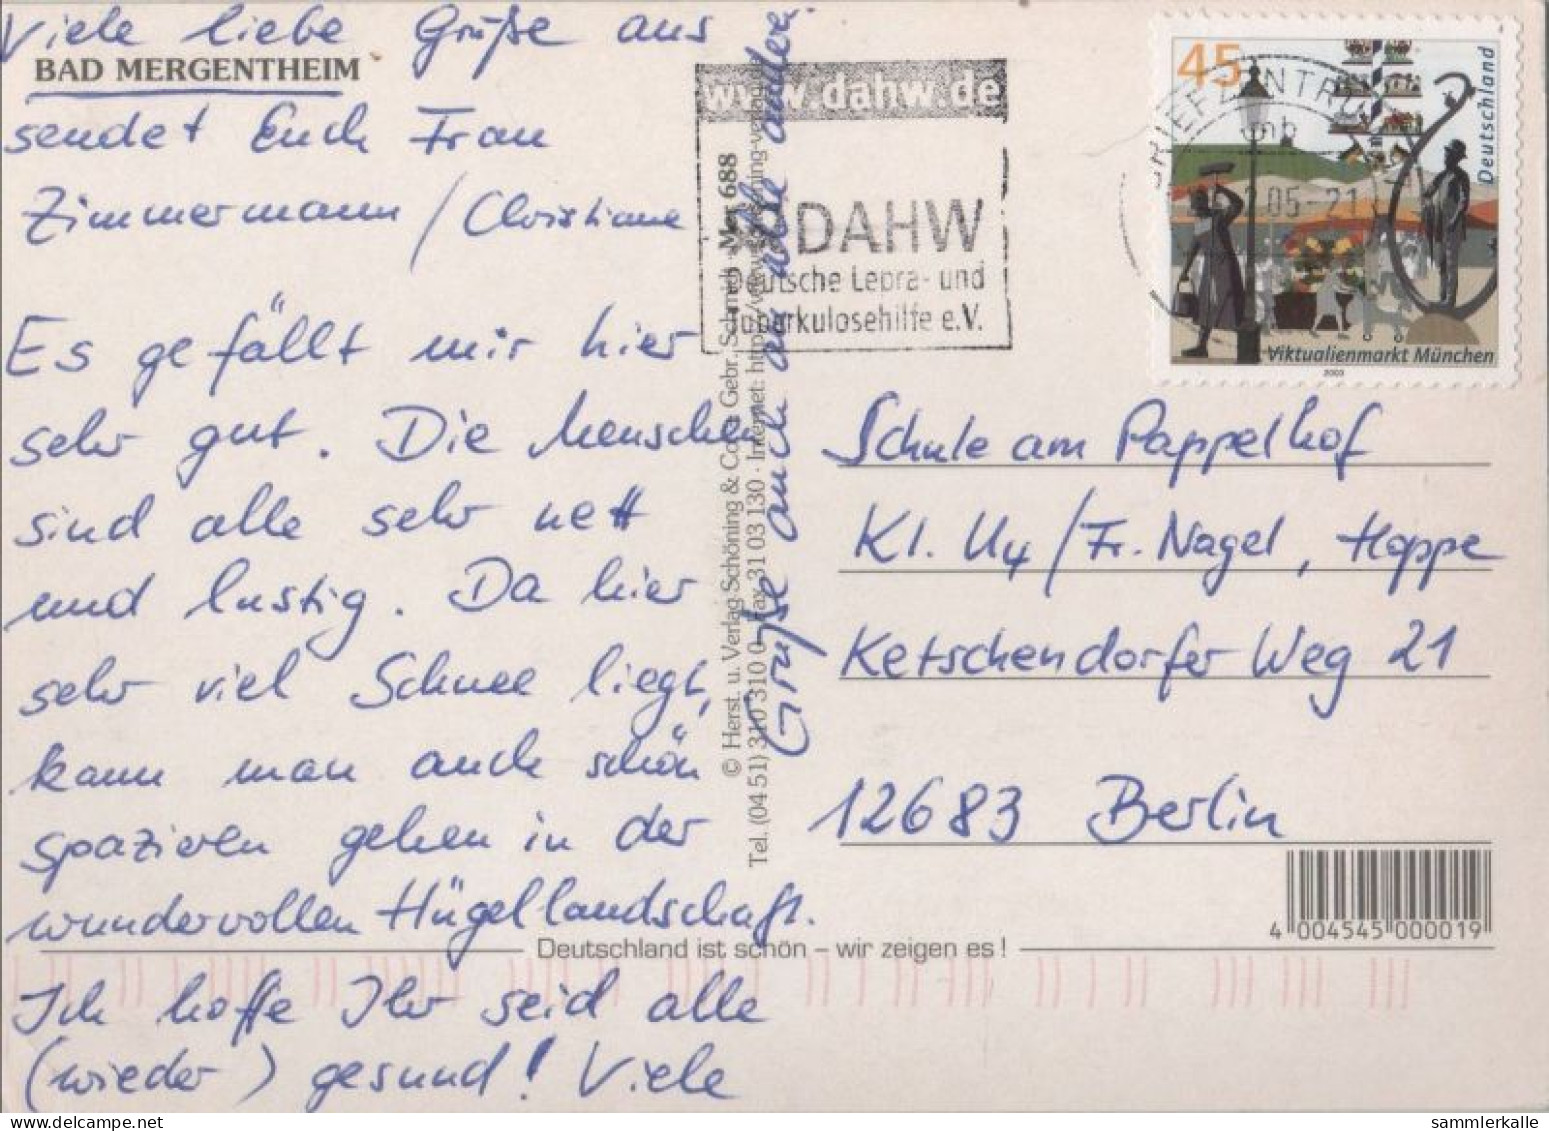 Viele liebe Grüße aus
BAD MERGENTHEIM
sendet Euch Frau
Zimmermann / Christiane
Es gefällt mir hier
sehr gut. Die Menschen
sind alle sehr nett
und lustig. Da hier
sehr viel Schnee liegt,
kann man auch schön
spazieren gehen in der
wundervollen Hügellandschaft.
Ich hoffe Ihr seid alle
(wieder) gesund! Viele
Grüße auch an alle ander
© Herst. u. Verlag Schöning & Co + Gebr. Schmidt · Mer 688
Tel. (04 51) 310 310 0 · Fax 31 03 130 · Internet:
www.dahw.de
DAHW
Deutsche Lepra- und
Tuberkulosehilfe e.V.
BRIEFZENTRUM
05-21
45
Deutschland
Viktualienmarkt München
2003
Schule am Pappelhof
Kl. U4 / Fr. Nagel, Hoppe
Ketschendorfer Weg 21
12683 Berlin
4 004545 000019
Deutschland ist schön – wir zeigen es!
sammlerkalle